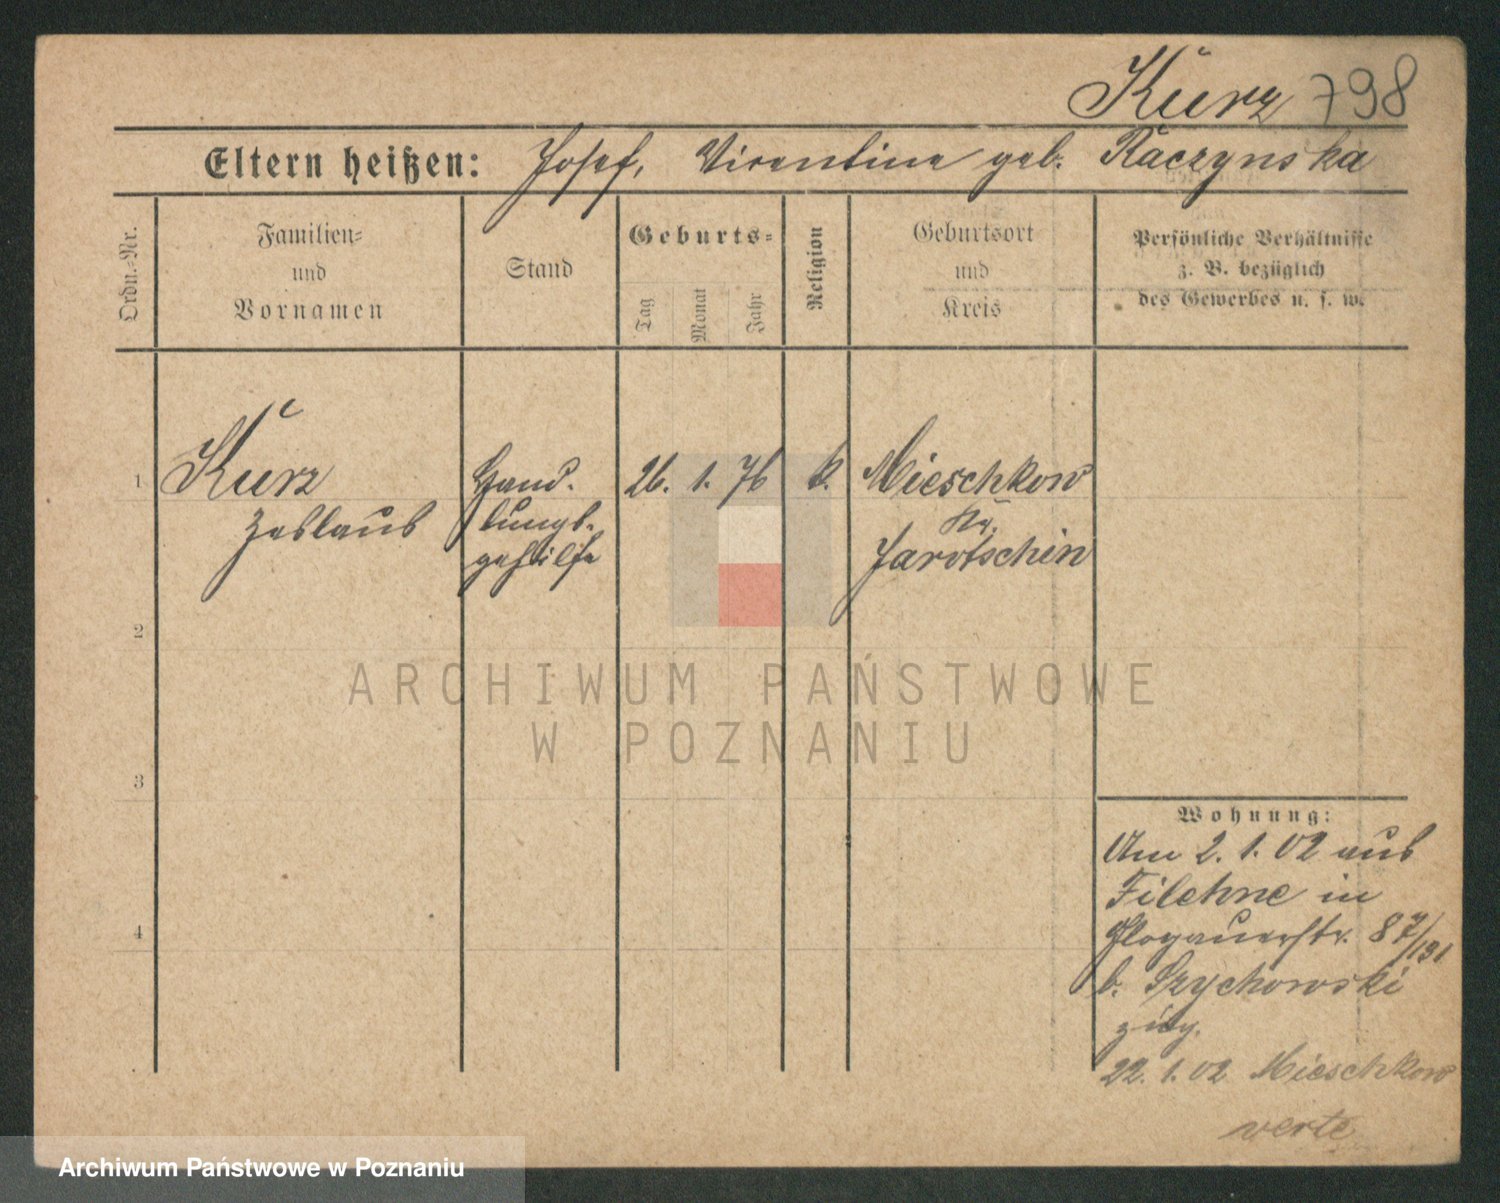 Kurz 798
Eltern heißen: Josef, geb. Raczynska
Ordn.-Nr.
Familien-
und
Vornamen
Stand
Geburts-
Tag
Monat
Jahr
Religion
Geburtsort
und
Kreis
Persönliche Verhältnisse
z. B. bezüglich
des Gewerbes u. s. w.
1
Kurz
Hand-
26. 1. 76
k.
Mieschkow
lungs-
Kr.
gehilfe
Jarotschin
2
ARCHIWUM PAŃSTWOWE
W POZNANIU
3
Wohnung:
Am 2. 1. 02 aus
Filehne in
4
Glogauerstr. 87/131
b. Szychowski
zug.
22. 1. 02 Mieschkow
verte
Archiwum Państwowe w Poznaniu